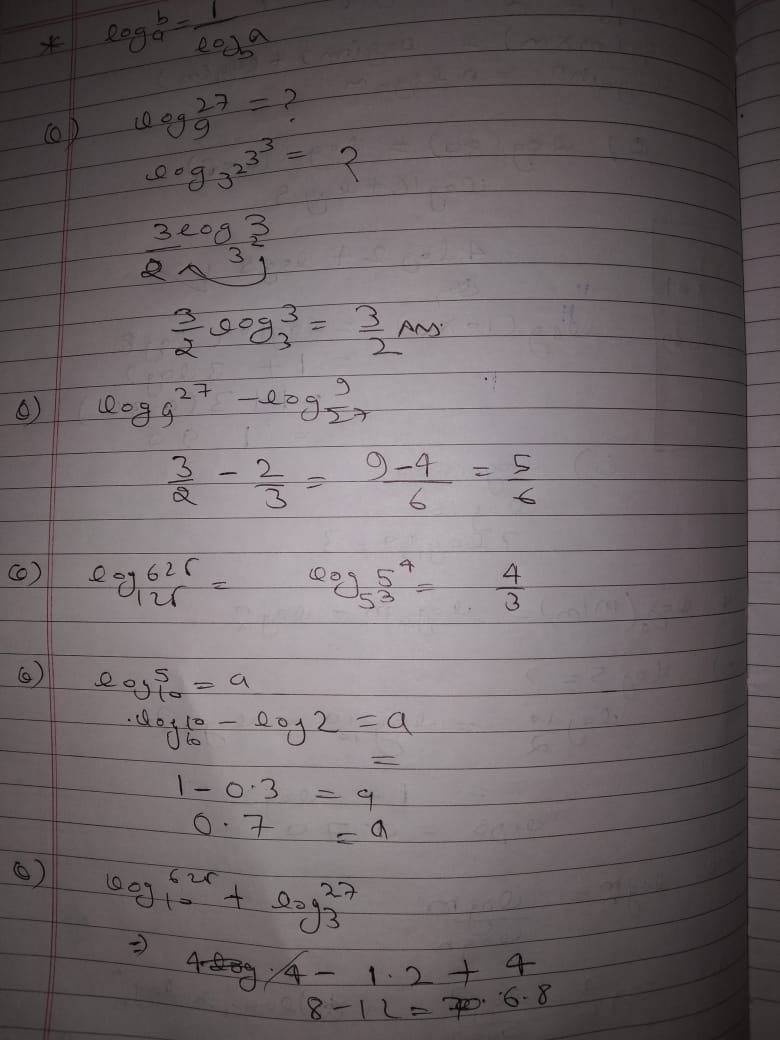 * log_a^b = 1/log_b^a
Q) log_9^27 = ?
log_{3^2} 3^3 = ?
3/2 log_3^3
3/2 log_3^3 = 3/2 Ans.
Q) log_9^27 - log_27^9
3/2 - 2/3 = (9-4)/6 = 5/6
Q) log_125^625 = log_{5^3} 5^4 = 4/3
Q) log_10^5 = a
log_10^10 - log 2 = a
1 - 0.3 = a
0.7 = a
Q) log_10^625 + log_3^27
⇒ 4 - 1.2 + 4
8 - 12 = 6.8